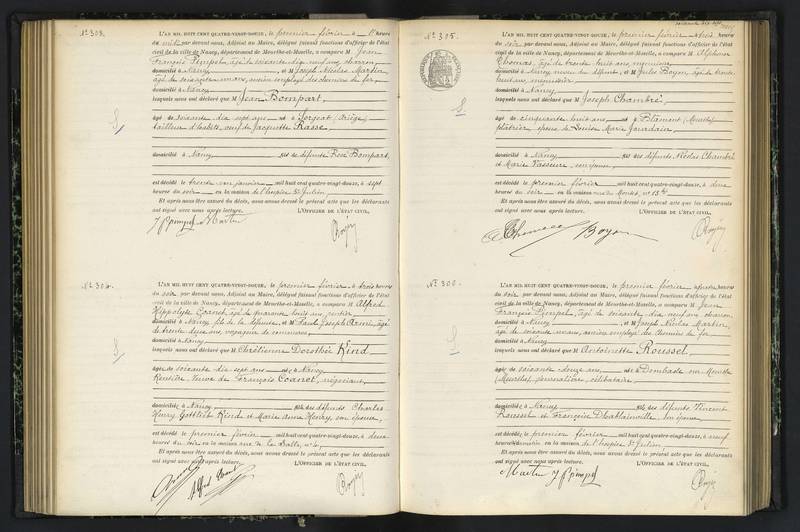 N° 303.
L'AN MIL HUIT CENT QUATRE-VINGT-DOUZE, le premier février à heures
du midi par devant nous, Adjoint au Maire, délégué faisant fonctions d'officier de l'état
civil de la ville de Nancy, département de Meurthe-et-Moselle, a comparu M Jean
François Pimpel, âgé de soixante dix neuf ans, charron,
domicilié à Nancy, et M Joseph Nicolas Martin,
âgé de soixante neuf ans, ancien employé des chemins de fer,
domicilié à Nancy
lesquels nous ont déclaré que M Jean Bompart,
âgé de soixante dix sept ans né à Sorgeat (Ariège)
tailleur d'habits, veuf de Jacquette Rasse
domicilié à Nancy fils de défunts René Bompart,
est décédé le trente un janvier mil huit cent quatre-vingt-douze, à sept
heures du soir en la maison de l'hospice St Julien,
Et après nous être assuré du décès, nous avons dressé le présent acte que les déclarants
ont signé avec nous après lecture. L'OFFICIER DE L'ÉTAT CIVIL,
J Pimpel Martin
N° 304.
L'AN MIL HUIT CENT QUATRE-VINGT-DOUZE, le premier février à trois heures
du soir par devant nous, Adjoint au Maire, délégué faisant fonctions d'officier de l'état
civil de la ville de Nancy, département de Meurthe-et-Moselle, a comparu M Alfred
Hippolyte Cornet, âgé de quarante huit ans, rentier,
domicilié à Nancy, fils de la défunte, et M Paul Joseph âgé
de trente deux ans, voyageur de commerce,
domicilié à Nancy
lesquels nous ont déclaré que M Chrétienne Dorothée Kind,
âgée de soixante dix sept ans née à Nancy
Rentière, Veuve de François Cornet, négociant,
domiciliée à Nancy, fille des défunts Charles
Henry Gottlieb Kind et Marie Anne Henry, son épouse,
est décédée le premier février mil huit cent quatre-vingt-douze, à deux
heures du soir en la maison rue de la n° 4
Et après nous être assuré du décès, nous avons dressé le présent acte que les déclarants
ont signé avec nous après lecture. L'OFFICIER DE L'ÉTAT CIVIL,
N° 305.
L'AN MIL HUIT CENT QUATRE-VINGT-DOUZE, le premier février à trois heures
du soir par devant nous, Adjoint au Maire, délégué faisant fonctions d'officier de l'état
civil de la ville de Nancy, département de Meurthe-et-Moselle, a comparu M Alphonse
Thomas, âgé de trente huit ans, menuisier,
domicilié à Nancy, neveu du défunt, et M Jules Boyon, âgé de trente
huit ans, menuisier,
domicilié à Nancy
lesquels nous ont déclaré que M Joseph Chambré,
âgé de cinquante huit ans né à Blâmont (Meurthe)
plâtrier, époux de Louise Marie Jourdain,
domicilié à Nancy fils des défunts Nicolas Chambré
et Marie Vasseur, son épouse,
est décédé le premier février mil huit cent quatre-vingt-douze, à deux
heures du soir en la maison
Et après nous être assuré du décès, nous avons dressé le présent acte que les déclarants
ont signé avec nous après lecture. L'OFFICIER DE L'ÉTAT CIVIL,
AThomas Boyon
N° 306.
L'AN MIL HUIT CENT QUATRE-VINGT-DOUZE, le premier février à quatre heures
du soir par devant nous, Adjoint au Maire, délégué faisant fonctions d'officier de l'état
civil de la ville de Nancy, département de Meurthe-et-Moselle, a comparu M Jean
François Pimpel, âgé de soixante dix neuf ans, charron,
domicilié à Nancy, et M Joseph Nicolas Martin,
âgé de soixante neuf ans, ancien employé des chemins de fer
domicilié à Nancy
lesquels nous ont déclaré que M Antoinette Roussel,
âgée de soixante douze ans née à Dombasle sur Meurthe
(Meurthe), journalière, célibataire,
domiciliée à Nancy fille des défunts Vincent
Roussel et Françoise son épouse
est décédée le premier février mil huit cent quatre-vingt-douze, à neuf
heures du matin en la maison de l'hospice St Julien,
Et après nous être assuré du décès, nous avons dressé le présent acte que les déclarants
ont signé avec nous après lecture. L'OFFICIER DE L'ÉTAT CIVIL,
Martin J Pimpel